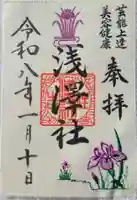 奉拝
芸能上達
美容健康
浅澤社
令和八年一月十日